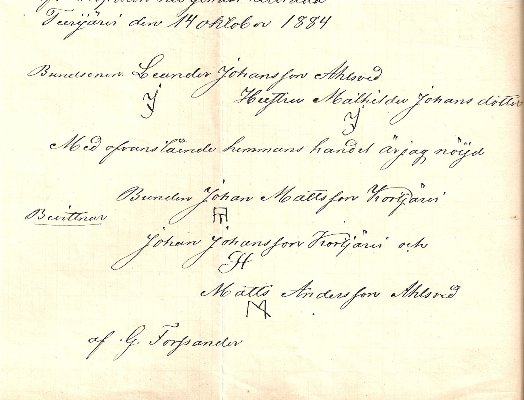 Terijärvi den 14 oktober 1884
Bondsonen Leander Johansson Ahlsved
Hustru Mathilda Johans dotter
Med ofvanstående hemmans handel är jag nöijd
Bonden Johan Mattsson Kortjärvi
Bevittnar
Johan Johansson Kortjärvi och
Matts Andersson Ahlsved
af G. Forsander